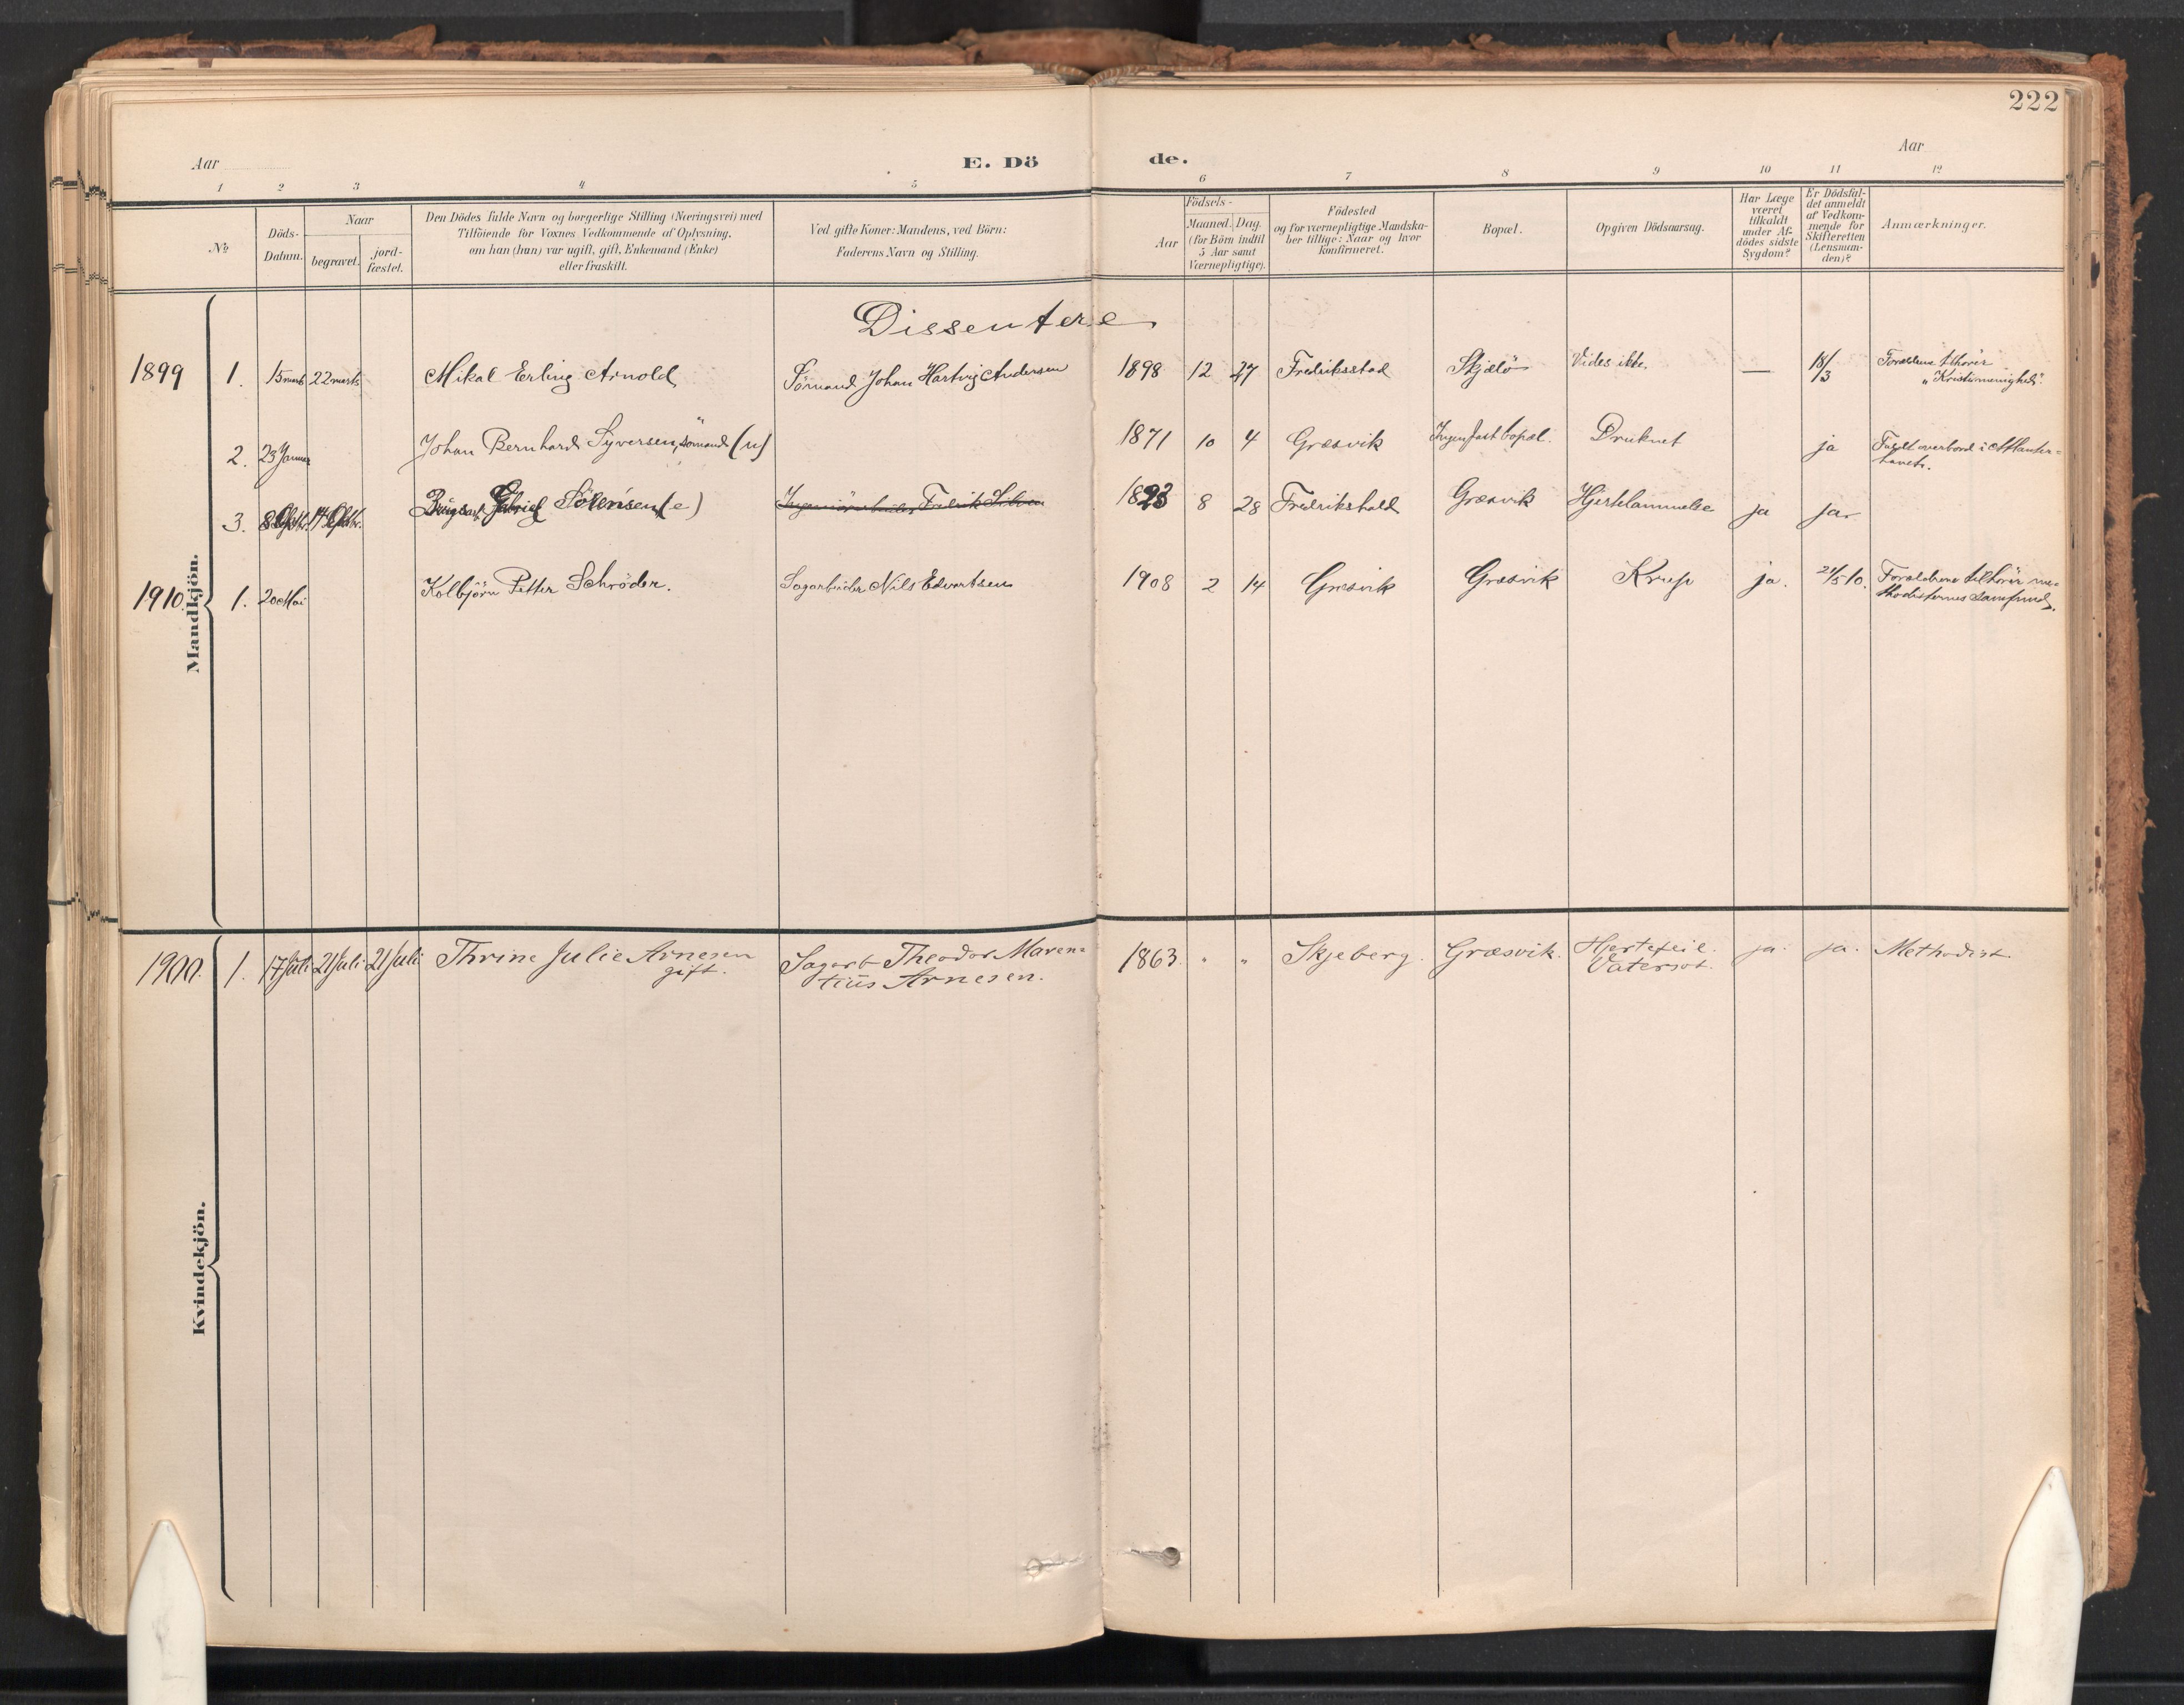 222
Aar
E. Dö
de.
Aar
1 2 3 4 5 6 7 8 9 10 11 12
№
Döds-
Datum.
Naar
begravet.
jord-
fæstet.
Den Dödes fulde Navn og borgerlige Stilling (Næringsvei) med
Tilföiende for Voxnes Vedkommende af Oplysning,
om han (hun) var ugift, gift, Enkemand (Enke)
eller fraskilt.
Ved gifte Koner: Mandens, ved Börn:
Faderens Navn og Stilling.
Födsels-
Aar
Maaned. Dag.
(for Börn indtil
5 Aar samt
Værnepligtige).
Födested
og for værnepligtige Mandska-
ber tillige: Naar og hvor
konfirmeret.
Bopæl.
Opgiven Dödsaarsag.
Har Læge
været
tilkaldt
under Af-
dödes sidste
Sygdom?
Er Dödsfal-
det anmeldt
af Vedkom-
mende for
Skifteretten
(Lensman-
den)?
Anmærkninger.
Dissentere
Mandkjön.
1899 1. 15 marts 22 marts Mikal Erling Arnold Sömand Johan Hartvig Andersen 1898 12 27 Fredriksstad Skjælö Vides ikke. — 18/3 Forældrene tilhörer
"Kristi menighed".
2. 23 Januar Johan Bernhard Syversen, sömand (u) 1871 10 4 Græsvik Ingen fast bopæl. Druknet ja Faldt overbord i Atlanter-
havet.
3. 8 14 Gabriel Sörensen (e) Fredrik 8 28 Fredrikshald Græsvik Hjertelammelse ja ja
1910. 1. 20 Mai Kolbjörn Petter Schröder. Sagarbeider Nils Edvertsen 1908 2 14 Græsvik Græsvik Krup ja. 21/5 10. Forældrene tilhörer me-
thodisternes samfund.
Kvindekjön.
1900. 1. 17 Juli 21 Juli 21 Juli Thrine Julie Arnesen
gift.
Sagarb. Theodor Maren=
tius Arnesen.
1863. " " Skjeberg. Græsvik. Hjertefeil.
Vatersot.
ja. ja. Methodist.